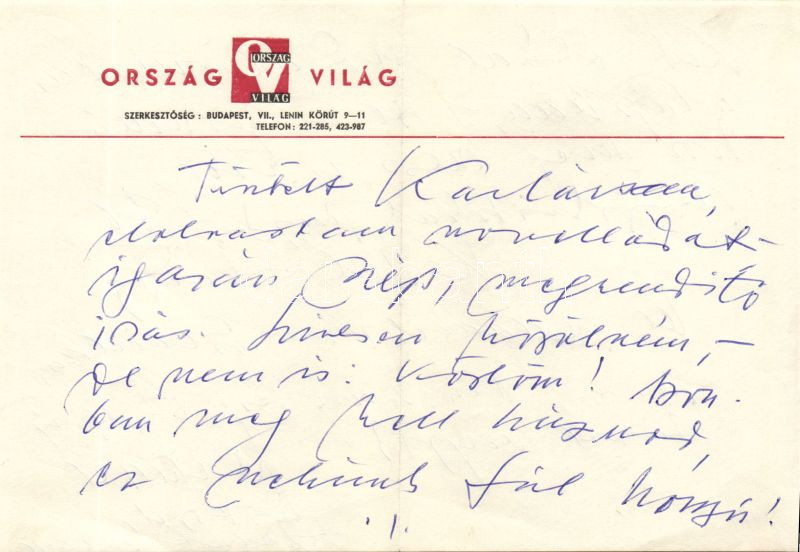 ORSZÁG VILÁG
ORSZÁG
VILÁG
SZERKESZTŐSÉG: BUDAPEST, VII., LENIN KÖRÚT 9—11
TELEFON: 221-285, 423-987
Tisztelt
elolvastam novelládát-
igazán szép, megrendítő
írás. Szívesen közölném, –
de nem is: közlöm! Azon-
ban meg kell húznod,
ez nekünk túl hosszú!
./.